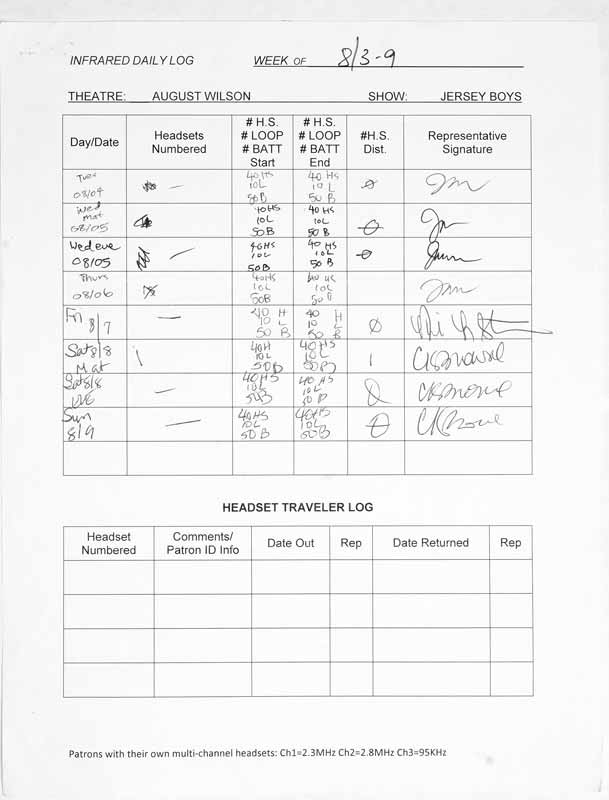 INFRARED DAILY LOG WEEK OF 8/3-9
THEATRE: AUGUST WILSON SHOW: JERSEY BOYS
Day/Date Headsets Numbered # H.S. # LOOP # BATT Start # H.S. # LOOP # BATT End #H.S. Dist. Representative Signature
Tues 08/04 — 40 HS 10L 50B 40 HS 10 L 50 B Ø
Wed Mat 08/05 40 HS 10L 50B 40 HS 10L 50 B Ø
Wed eve 08/05 — 40HS 10L 50B 40 HS 10L 50B Ø
Thurs 08/06 40HS 10L 50B 40 HS 10L 50B
Fri 8/7 — 40 H 10 L 50 B 40 H 10 L 50 B Ø
Sat 8/8 Mat 1 40H 10L 50B 40HS 10L 50B 1
Sat 8/8 — 40HS 10L 50B 40 HS 10L 50B Ø
Sun 8/9 — 40HS 10L 50B 40HS 10L 50B Ø
HEADSET TRAVELER LOG
Headset Numbered Comments/ Patron ID Info Date Out Rep Date Returned Rep
Patrons with their own multi-channel headsets: Ch1=2.3MHz Ch2=2.8MHz Ch3=95KHz